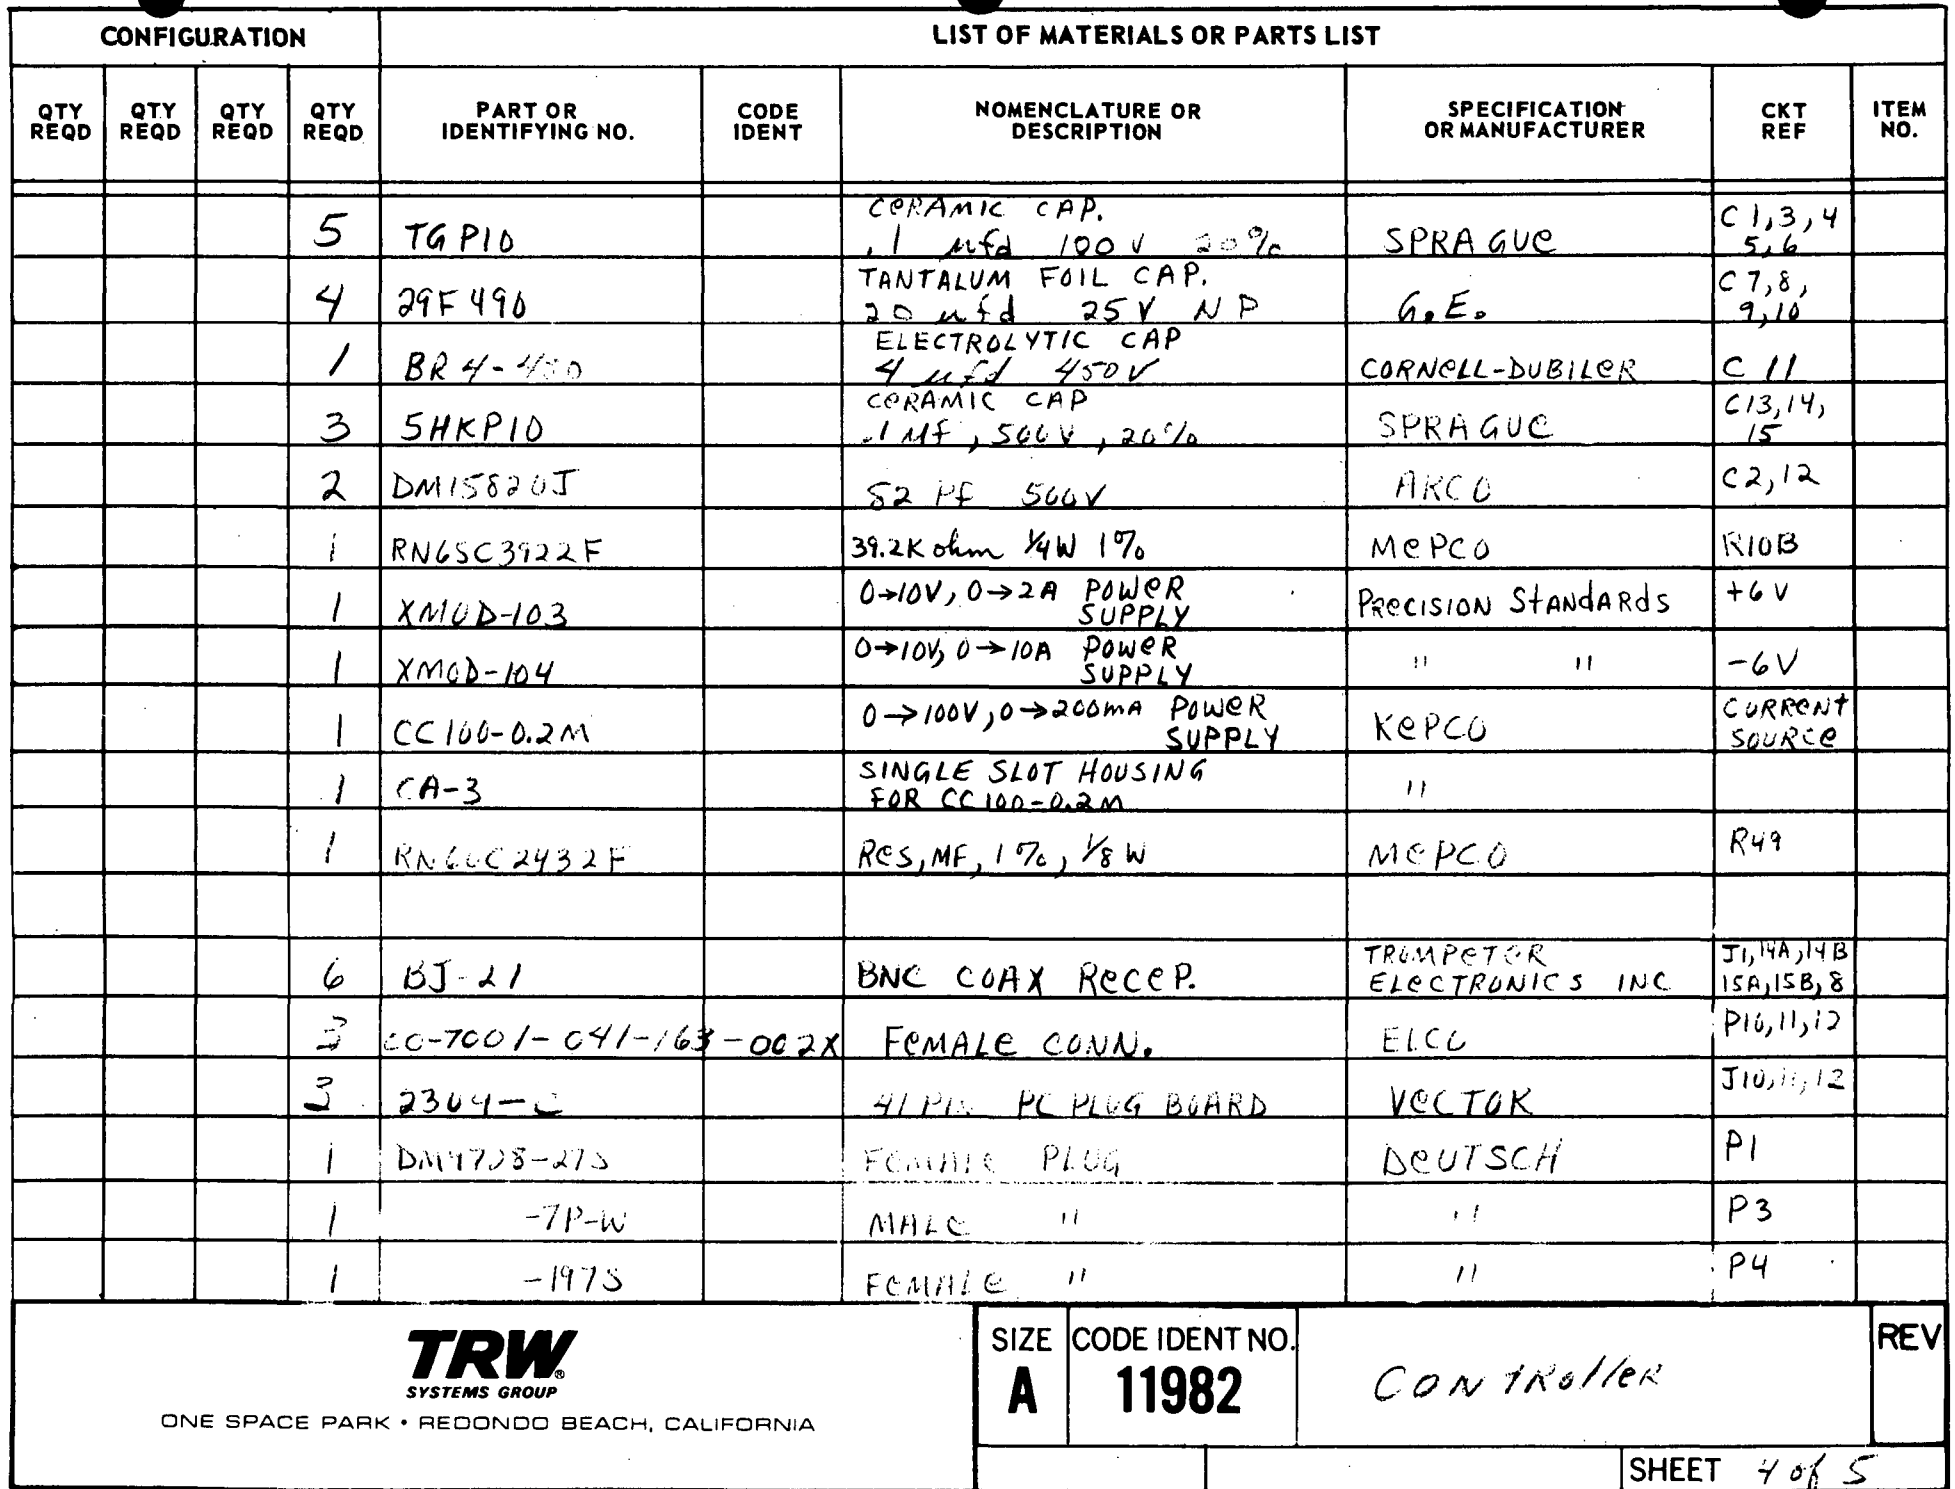 CONFIGURATION LIST OF MATERIALS OR PARTS LIST
QTY REQD QTY REQD QTY REQD QTY REQD PART OR IDENTIFYING NO. CODE IDENT NOMENCLATURE OR DESCRIPTION SPECIFICATION OR MANUFACTURER CKT REF ITEM NO.
5 TGP10 CERAMIC CAP. .1 mfd 100V 20% SPRAGUE C1,3,4 5,6
4 29F490 TANTALUM FOIL CAP. 20 mfd 25V NP G.E. C7,8, 9,10
1 BR4-450 ELECTROLYTIC CAP 4 mfd 450V CORNELL-DUBILER C11
3 5HKP10 CERAMIC CAP .1 Mf, 500V, 20% SPRAGUE C13,14, 15
2 DM15820J 82 Pf 500V ARCO C2,12
1 RN65C3922F 39.2K ohm 1/4W 1% MEPCO R10B
1 XMOD-103 0→10V, 0→2A POWER SUPPLY PRECISION STANDARDS +6V
1 XMOD-104 0→10V, 0→10A POWER SUPPLY " " -6V
1 CC100-0.2M 0→100V, 0→200mA POWER SUPPLY KEPCO CURRENT SOURCE
1 CA-3 SINGLE SLOT HOUSING FOR CC100-0.2M "
1 RN60C2432F RES, MF, 1%, 1/8W MEPCO R49
6 BJ-21 BNC COAX RECEP. TROMPETOR ELECTRONICS INC J1,14A,14B 15A,15B,8
3 00-7001-041-163-002X FEMALE CONN. ELCO P10,11,12
3 2304-C 41 PIN PC PLUG BOARD VECTOR J10,11,12
1 FEMALE PLUG DEUTSCH P1
1 -7P-W MALE " " P3
1 -197S FEMALE " " P4
TRW®
SYSTEMS GROUP
ONE SPACE PARK • REDONDO BEACH, CALIFORNIA
SIZE A CODE IDENT NO. 11982 CONTROLLER REV
SHEET 4 of 5